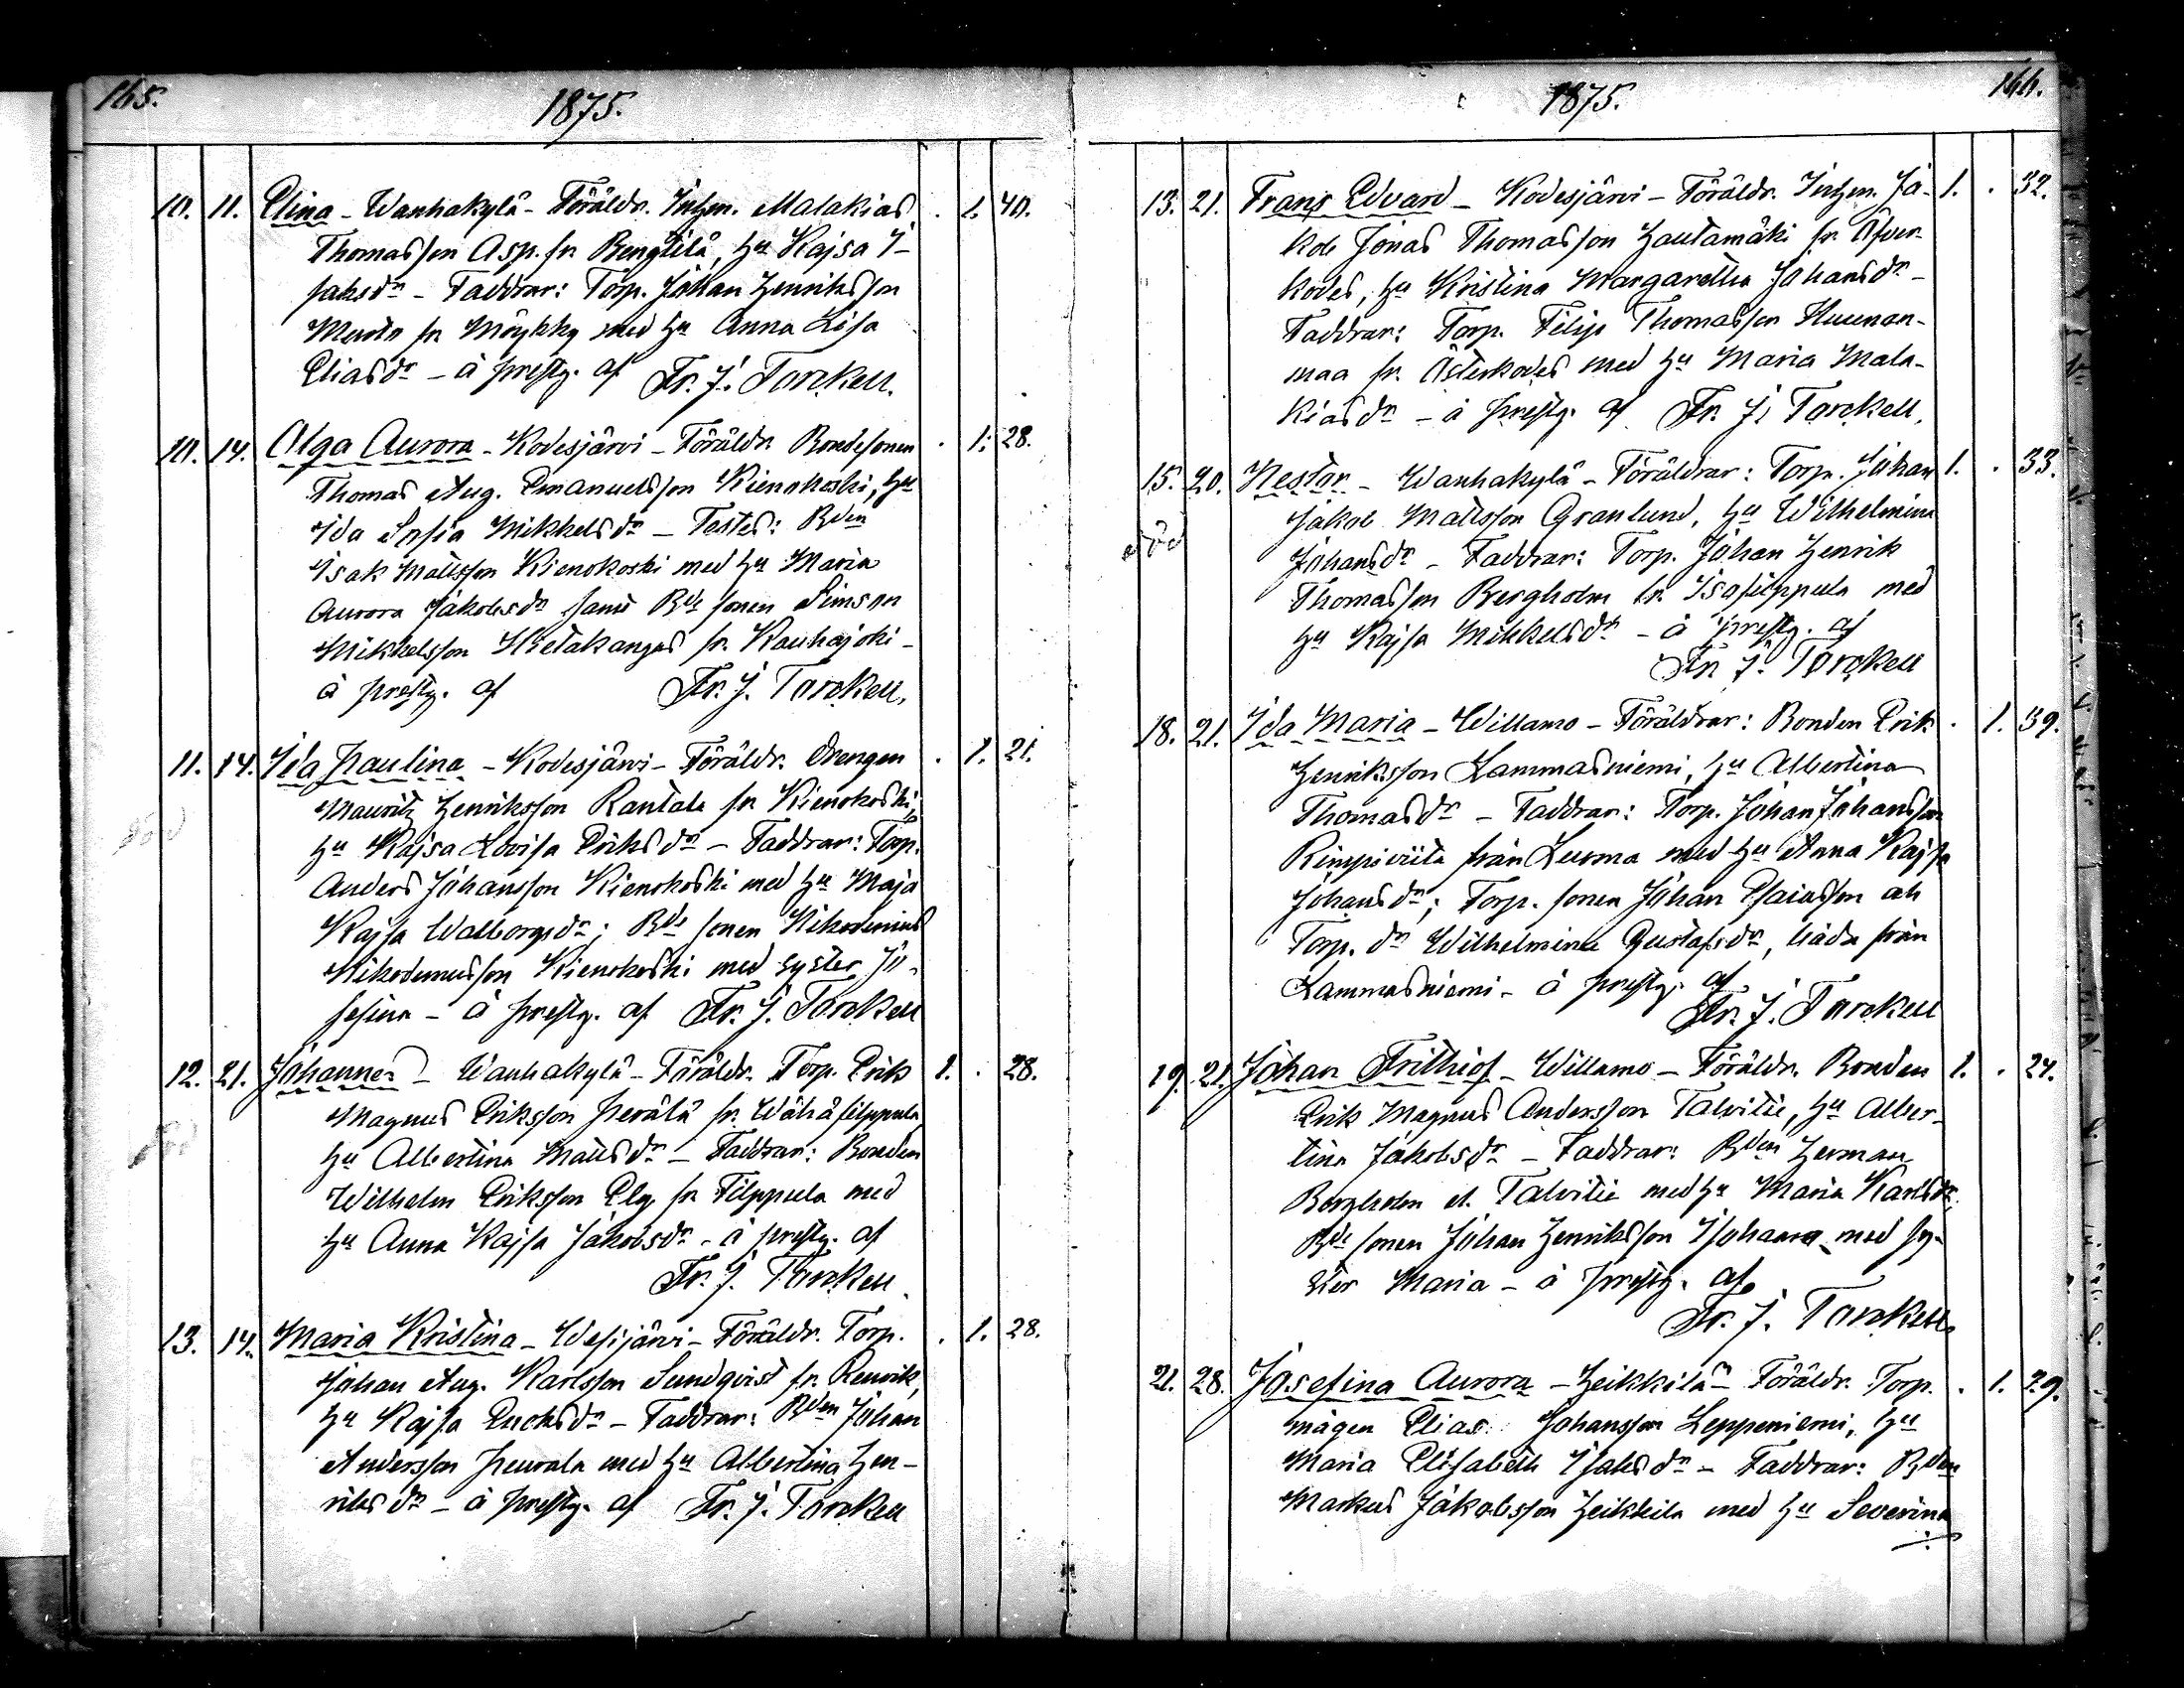 165.
1875.
10. 11. Elina - Wanhakylä - Föräldr. Inhn. Malakias . 1. 40.
Thomasson Asp. fr. Bengtilä, hu Kajsa I-
saksdr - Faddrar: Torp. Johan Henriksson
fr. Möykky med hu Anna Lisa
Eliasdr - å prestg. af Fr. J. Torckell.
10. 14. Olga Aurora - Kodesjärvi - Föräldr. Bondesonen . 1. 28.
Thomas Aug. Emanuelsson Kienokoski, hu
Ida Sofia Mikkelsdr - Testes: Bden
Isak Mattsson Kienokoski med hu Maria
Aurora Jakobsdr samt Bde sonen Simson
Mikkelsson Hietakangas fr. Kauhajoki -
å prestg. af Fr. J. Torckell.
11. 14. Ida Paulina - Kodesjärvi - Föräldr. Drengen . 1. 21.
Mauritz Henriksson Rantala fr Kienokoski,
hu Kajsa Lovisa Eriksdr - Faddrar: Torp.
död
Anders Johansson Kienokoski med hu Maja
Kajsa Walborgsdr; Bde sonen Nikodemus
Nikodemusson Kienokoski med syster Jo-
sefina - å prestg. af Fr. J. Torckell
12. 21. Johannes - Wanhakylä - Föräldr. Torp. Erik 1. . 28.
Magnus Eriksson Perälä fr. Wähäfilppula
död
hu Albertina Mattsdr - Faddrar: Bonden
Wilhelm Eriksson Ely fr Filppula med
hu Anna Kajsa Jakobsdr - å prestg. af
Fr. J. Torckell
13. 14. Maria Kristina - Wesijärvi - Föräldr. Torp. . 1. 28.
Johan Aug. Karlsson Sundqvist fr.
hu Kajsa Enoksdr - Faddrar: Bden Johan
Andersson Peurala med hu Albertina Hen-
riksdr - å prestg. af Fr. J. Torckell
166.
1875.
13. 21. Frans Edvard - Kodesjärvi - Föräldr. Inhn. Ja- 1. . 32.
kob Jonas Thomasson Hautamäki fr. Öfver-
kodes, hu Kristina Margaretha Johansdr -
Faddrar: Torp. Filip Thomasson Huunan-
maa fr. Österkodes med hu Maria Mala-
kiasdr - å prestg. af Fr. J. Torckell.
15. 20. Nestor - Wanhakylä - Föräldrar: Torp. Johan 1. . 33.
Jakob Mattsson Granlund, hu Wilhelmina
död
Johansdr - Faddrar: Torp. Johan Henrik
Thomasson Bergholm fr. Isofilppula med
hu Kajsa Mikkelsdr - å prestg. af
Fr. J. Torckell
18. 21. Ida Maria - Willamo - Föräldrar: Bonden Erik . 1. 39.
Henriksson Lammasniemi, hu Albertina
Thomasdr - Faddrar: Torp. Johan Johansson
Rimpiviita från Luoma med hu Anna Kajsa
Johansdr; Torp. sonen Johan Esaiasson och
Torp. dr Wilhelmina Gustafsdr, båda från
Lammasniemi - å prestg. af
Fr. J. Torckell
19. 21. Johan Frithiof - Willamo - Föräldr. Bonden 1. . 24.
Erik Magnus Andersson Talvitie, hu Alber-
tina Jakobsdr - Faddrar: Bden Herman
Bergholm el. Talvitie med hu Maria Karlsdr.
Bde sonen Johan Henriksson med sy-
ster Maria - å prestg. af
Fr. J. Torckell.
21. 28. Josefina Aurora - Heikkilä - Föräldr. Torp. . 1. 29.
mågen Elias Johansson Leppeniemi, hu
Maria Elisabeth Isaksdr - Faddrar: Bden
Markus Jakobsson Heikkilä med hu Severina